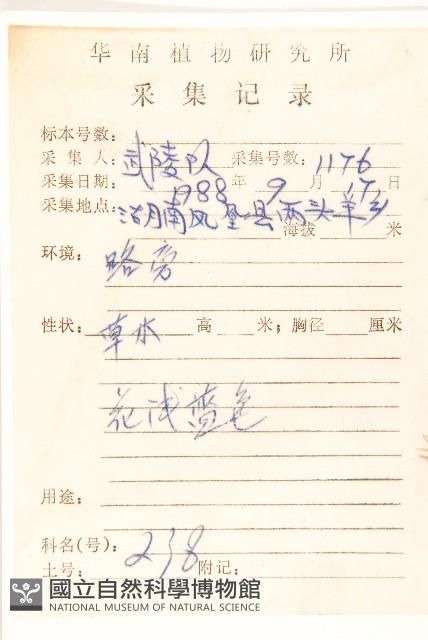 华南植物研究所
采集记录
标本号数:
采集人: 武陵队 采集号数: 1176
采集日期: 1988 年 9 月 17 日
采集地点: 湖南凤凰县两头羊乡
海拔 米
环境: 路旁
性状: 草本 高 米; 胸径 厘米
花浅蓝色
用途:
科名(号): 238
土号: 附记:
國立自然科學博物館
NATIONAL MUSEUM OF NATURAL SCIENCE